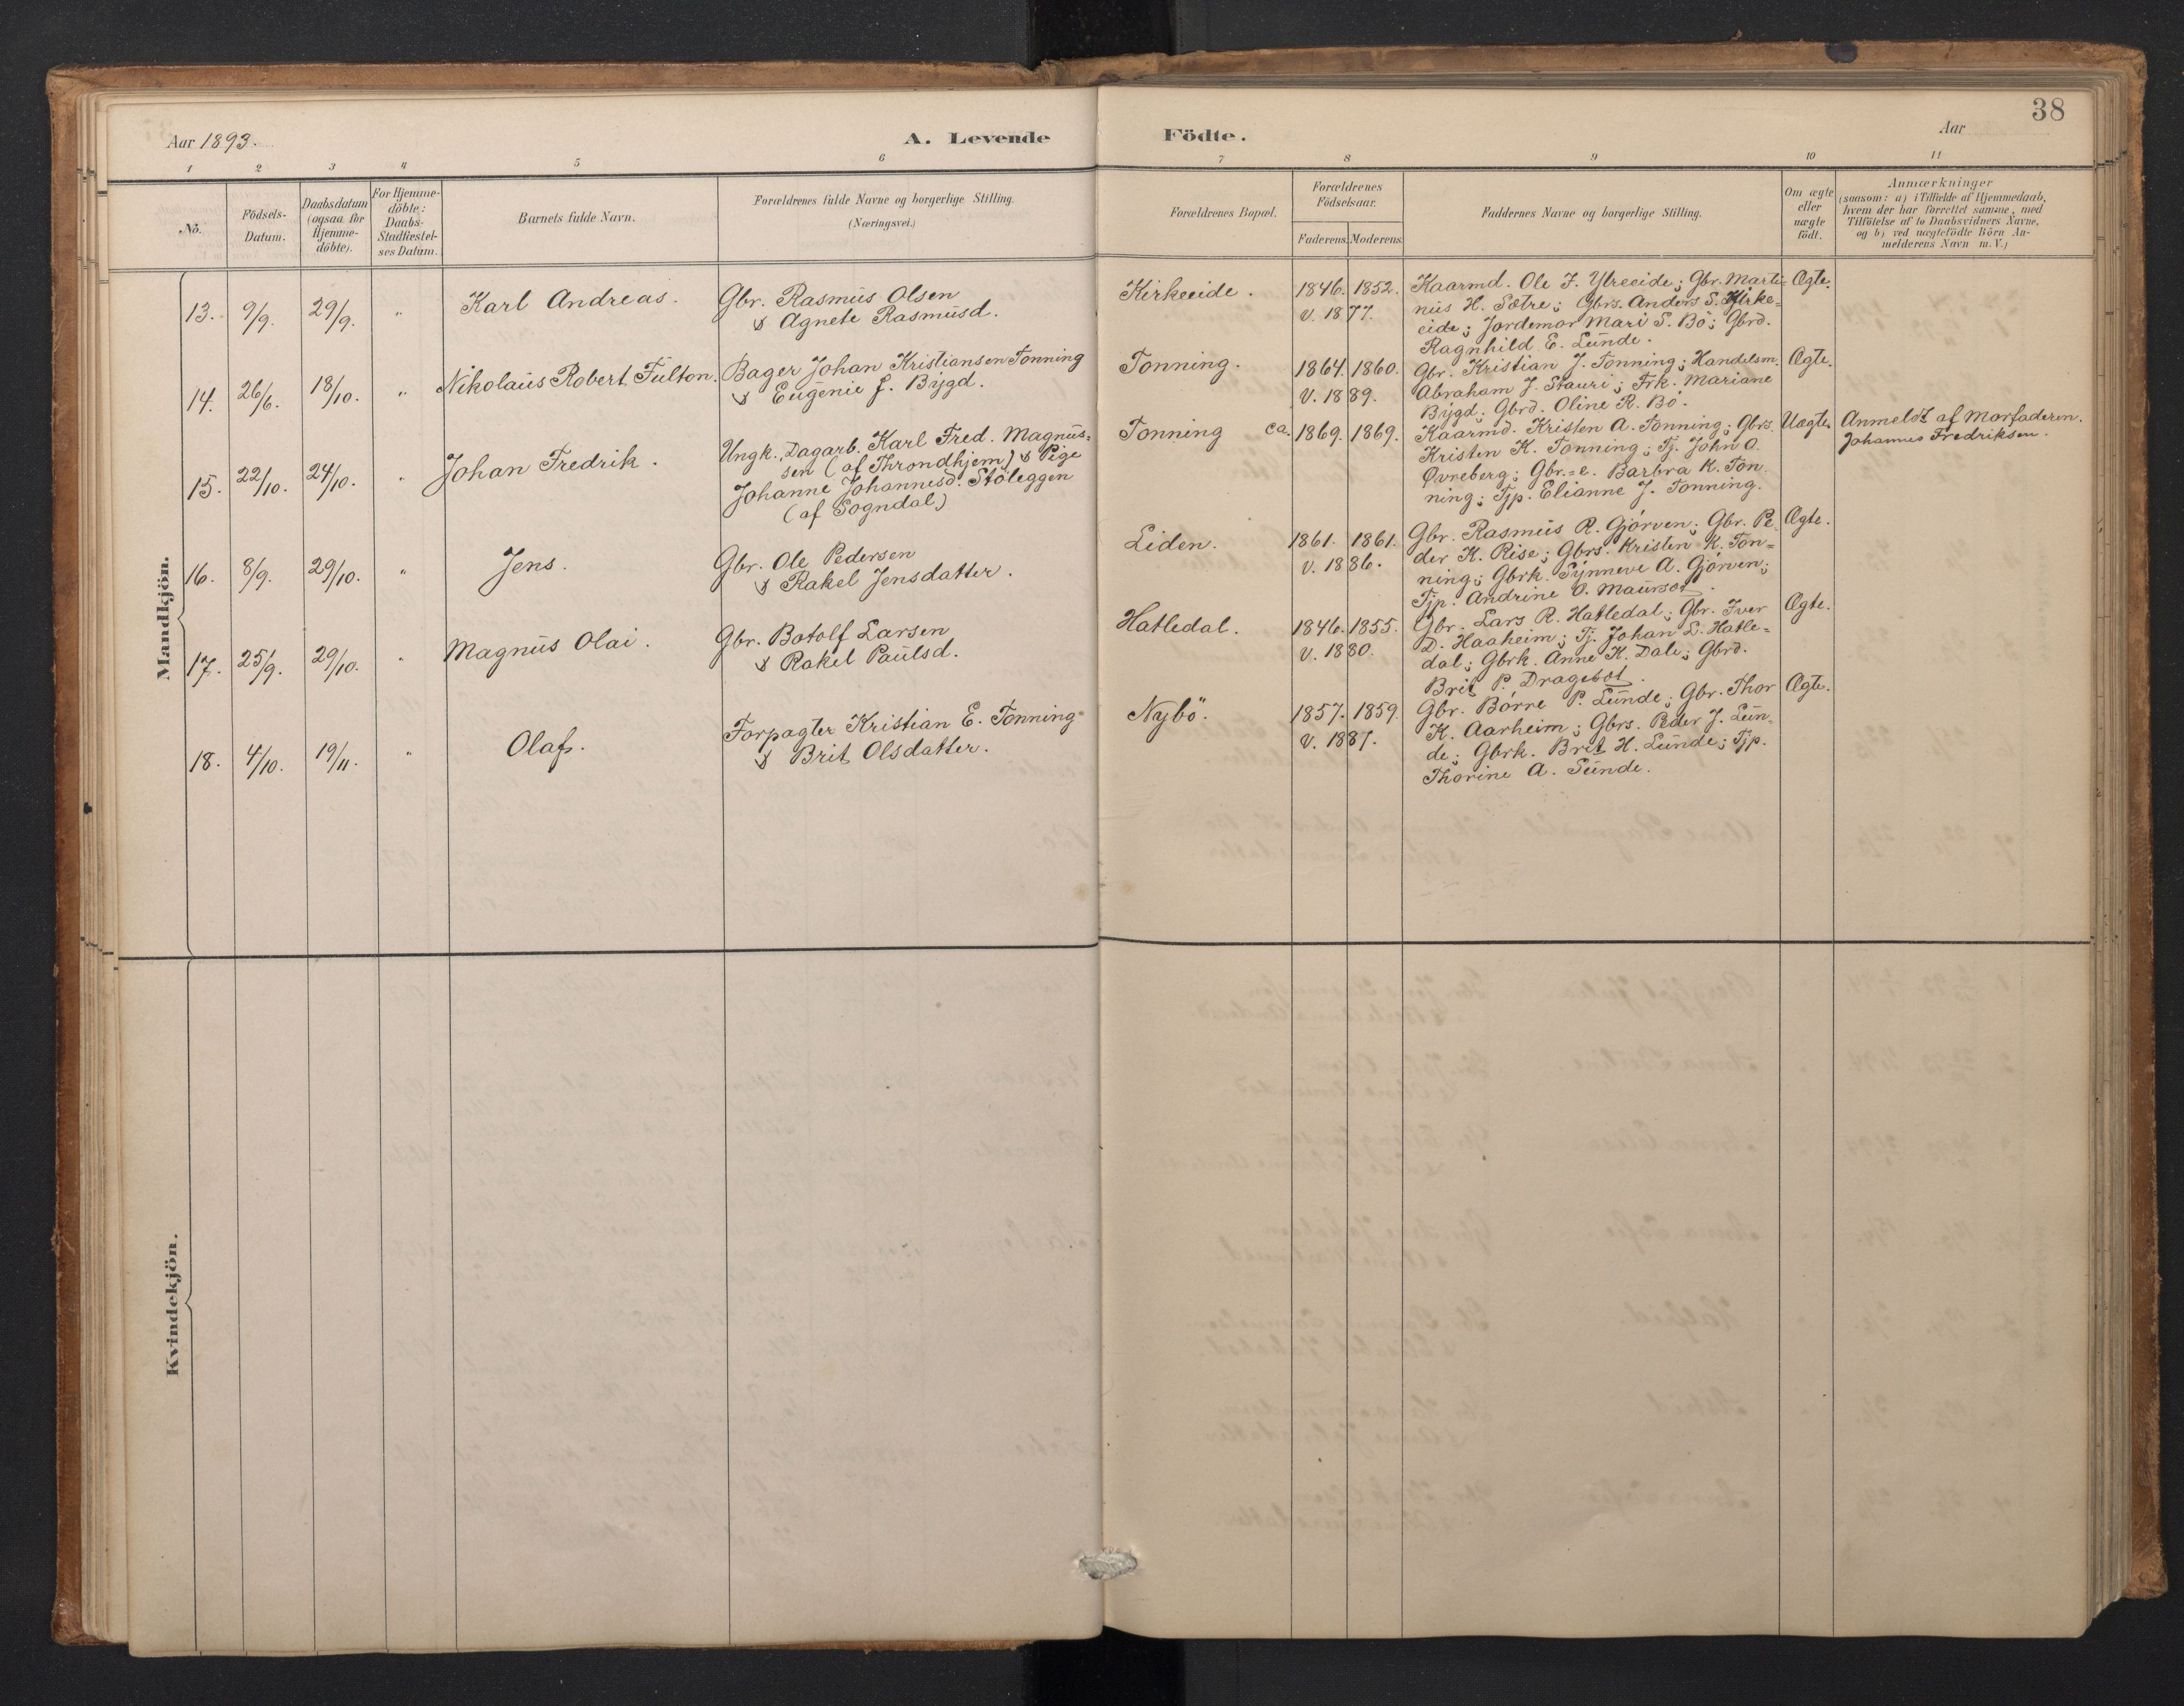 38
Aar 1893. A. Levende Födte. Aar
1 2 3 4 5 6 7 8 9 10 11
Nö.
Födsels-
Datum.
Daabsdatum
(ogsaa for
Hjemme-
döbte).
For Hjemme-
döbte:
Daabs-
Stadfestel-
ses Datum.
Barnets fulde Navn.
Forældrenes fulde Navne og borgerlige Stilling.
(Næringsvei.)
Forældrenes Bopæl.
Forældrenes
Födselsaar.
Faderens. Moderens.
Faddernes Navne og borgerlige Stilling.
Om ægte
eller
uægte
födt.
Anmærkninger
(saasom: a) i Tilfælde af Hjemmedaab,
hvem der har forrettet samme, med
Tilföielse af to Daabsvidners Navne,
og b) ved uægtefödte Börn An-
melderens Navn m. V.)
Mandkjön.
13. 9/9. 29/9. " Karl Andreas.
Gbr. Rasmus Olsen
& Agnete Rasmusd.
Kirkeeide. 1846. 1852.
V. 1877.
Kaarmd. Ole J. Ytreeide; Gbr. Marti-
nus H. Sætre; Gbrs. Anders S. Kirke-
eide; Jordemor Mari S. Bö; Gbrd.
Ragnhild E. Lunde.
Ægte.
14. 26/6. 18/10. " Nikolaus Robert Fulton.
Bager Johan Kristiansen Tonning
& Eugenie J. Bygd.
Tonning. 1864. 1860.
V. 1889.
Gbr. Kristian J. Tonning; Handelsm.
Abraham J. Stauri; Frk. Mariane
Bygd; Gbrd. Oline R. Bö.
Ægte.
15. 22/10. 24/10. " Johan Fredrik.
Ungk. Dagarb. Karl Fred. Magnus-
sen (af Throndhjem) & Pige
Johanne Johannesd. Stöleggen
(af Sogndal)
Tonning ca. 1869. 1869.
Kaarmd. Kristen A. Tonning; Gbrs.
Kristen K. Tonning; Tj. John O.
Øvreberg; Gbr.-e. Barbra K. Ton-
ning; Tjp. Elianne J. Tonning.
Uægte.
Anmeldt af Morfaderen.
Johannes Fredriksen.
16. 8/9. 29/10. " Jens.
Gbr. Ole Pedersen
& Rakel Jensdatter.
Liden. 1861. 1861.
V. 1886.
Gbr. Rasmus R. Gjörven; Gbr. Pe-
der K. Rise; Gbrs. Kristen K. Ton-
ning; Gbrk. Synneve A. Gjörven;
Tjp. Andrine O. Maurset.
Ægte.
17. 25/9. 29/10. " Magnus Olai.
Gbr. Botolf Larsen
& Rakel Paulsd.
Hatledal. 1846. 1855.
V. 1880.
Gbr. Lars R. Hatledal; Gbr. Iver
D. Haaheim; Tj. Johan L. Hatle-
dal; Gbrk. Anne K. Dale; Gbrd.
Brit P. Dragesæt.
Ægte.
18. 4/10. 19/11. " Olaf.
Forpagter Kristian E. Tonning
& Brit Olsdatter.
Nybö. 1857. 1859.
V. 1887.
Gbr. Börre P. Lunde; Gbr. Thor
K. Aarheim; Gbrs. Peder J. Lun-
de; Gbrk. Brit H. Lunde; Tjp.
Thorine A. Sunde.
Ægte.
Kvindekjön.